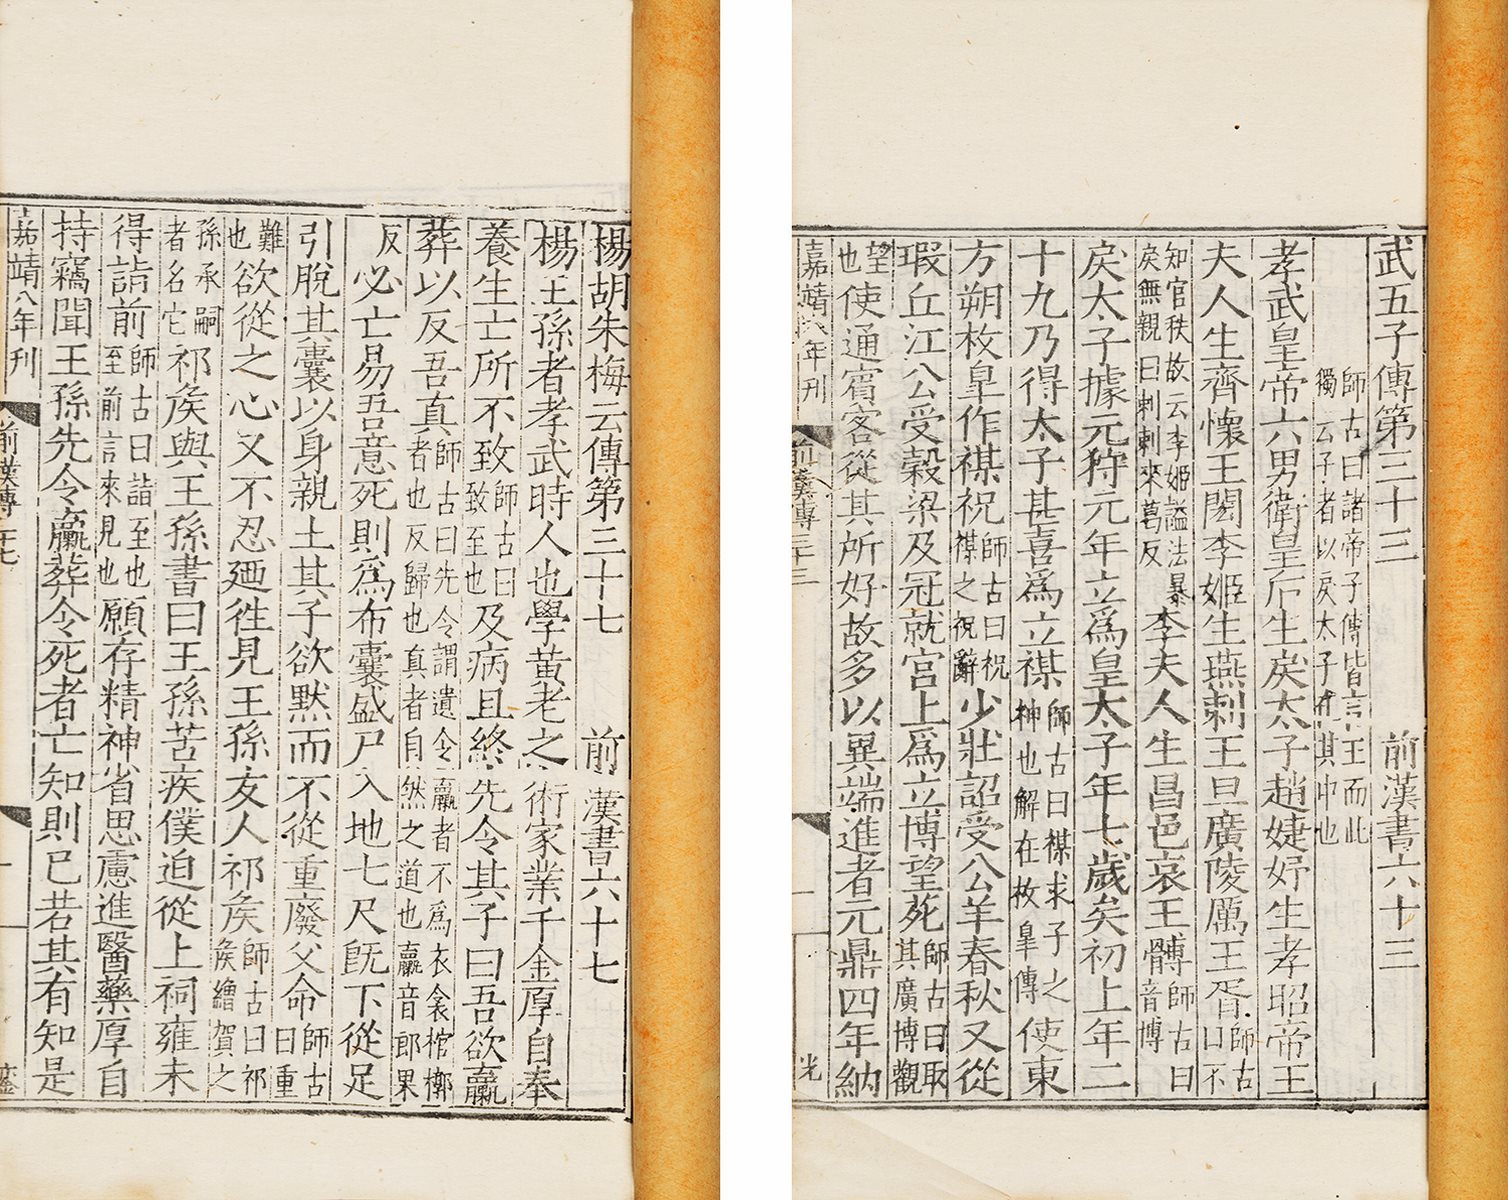 武五子傳第三十三 前漢書六十三
師古曰諸帝子傳皆言王而此
獨云子者以戾太子在其中也
孝武皇帝六男衛皇后生戾太子趙婕妤生孝昭帝王
夫人生齊懷王閎李姬生燕剌王旦廣陵厲王胥師古曰不
知官秩故云李姬諡法暴戾無親曰剌剌來葛反李夫人生昌邑哀王髆師古曰音博
戾太子據元狩元年立爲皇太子年七歲矣初上年二
十九乃得太子甚喜爲立禖師古曰禖求子之神也解在枚皐傳使東
方朔枚皐作禖祝師古曰祝禖之祝辭少壯詔受公羊春秋又從
瑕丘江公受穀梁及冠就宮上爲立博望苑師古曰取其廣博觀
望也使通賓客從其所好故多以異端進者元鼎四年納
嘉靖八年刊 前漢傳三十三 光
楊胡朱梅云傳第三十七 前漢書六十七
楊王孫者孝武時人也學黃老之術家業千金厚自奉
養生亡所不致師古曰致至也及病且終先令其子曰吾欲臝
葬以反吾真師古曰先令謂遺令臝者不爲衣衾棺槨者也反歸也真者自然之道也臝音郎果
反必亡易吾意死則爲布囊盛尸入地七尺旣下從足
引脫其囊以身親土其子欲黙而不從重廢父命師古曰重
難也欲從之心又不忍廼徃見王孫友人祁矦師古曰祁矦繒賀之
孫承嗣者名它祁矦與王孫書曰王孫苦疾僕迫從上祠雍未
得詣前師古曰詣至也至前言來見也願存精神省思慮進醫藥厚自
持竊聞王孫先令臝葬令死者亡知則已若其有知是
嘉靖八年刊 前漢傳三十七